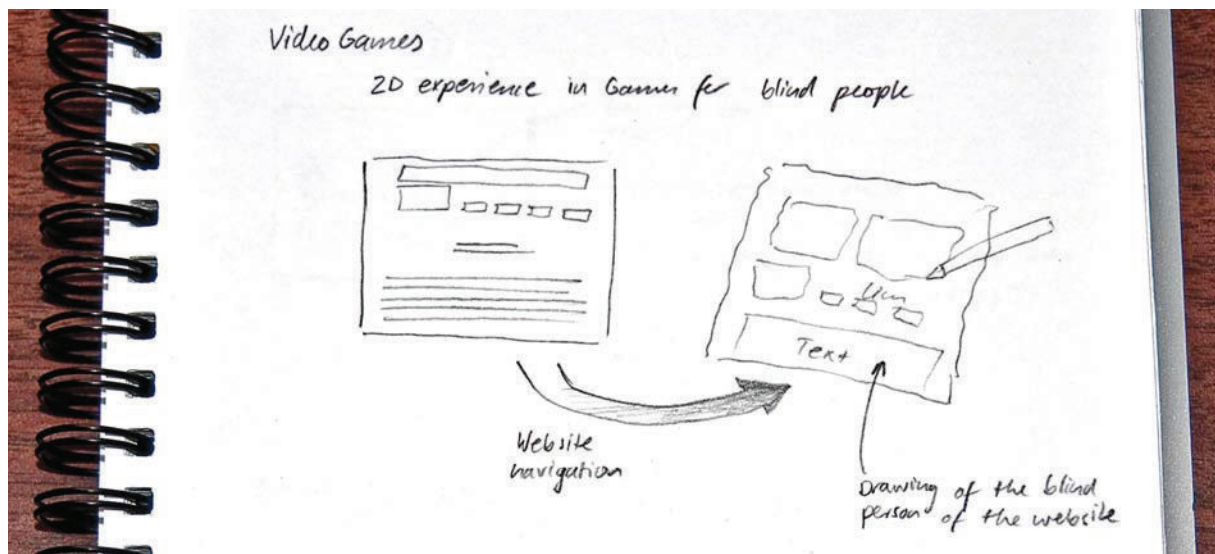 Video Games
2D experience in Games for blind people
Text
Website
navigation
Drawing of the blind
person of the website